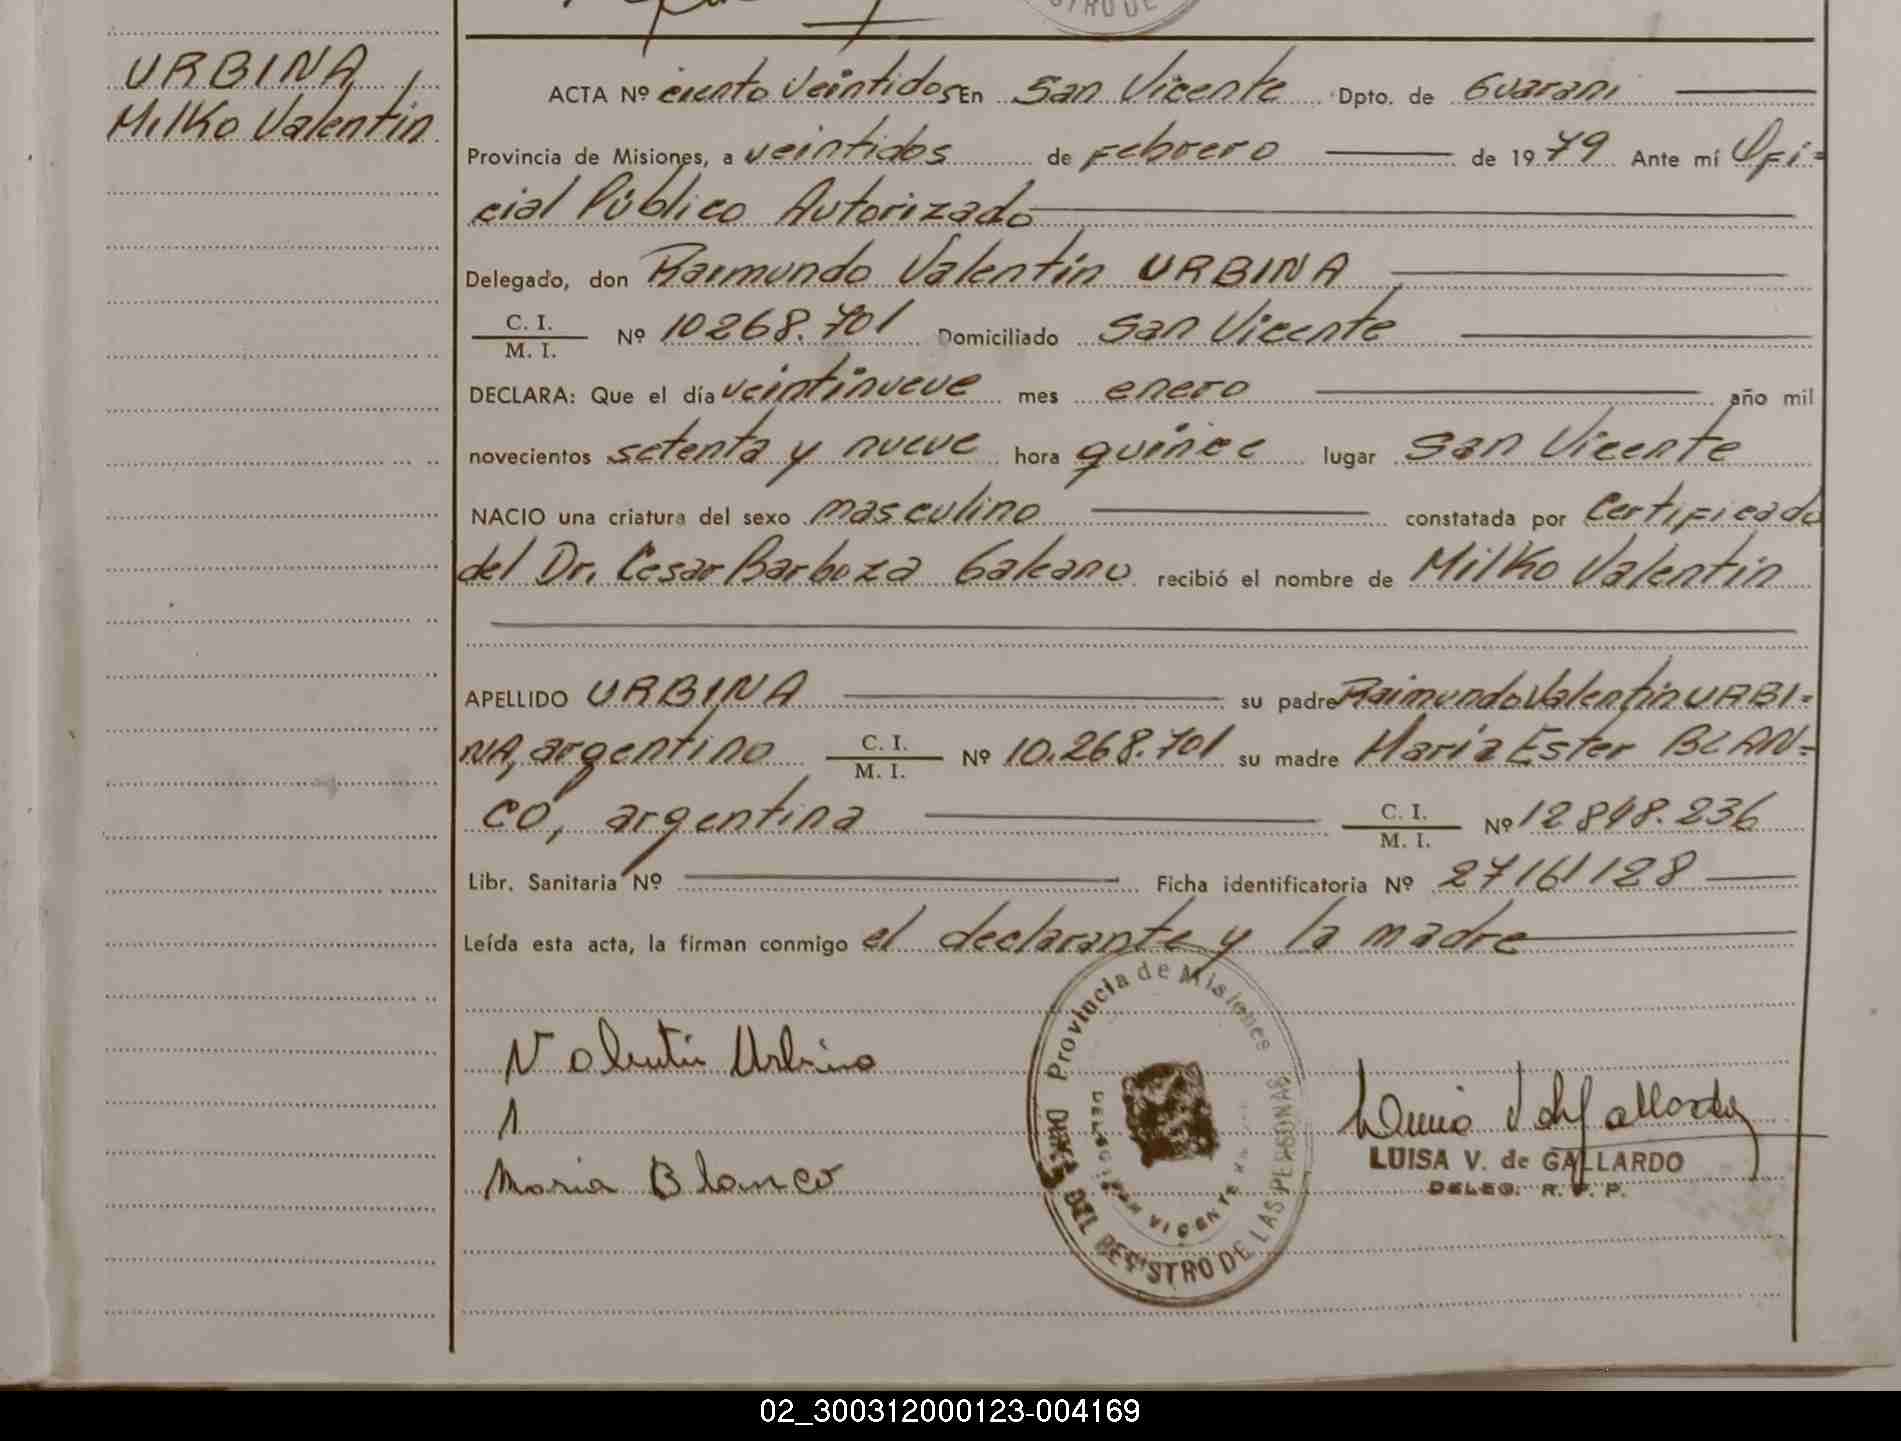 URBINA,
Milko Valentin
ACTA Nº ciento veintidos En San Vicente Dpto. de Guarani
Provincia de Misiones, a veintidos de Febrero de 1979 Ante mí Ofi=
cial Público Autorizado
Delegado, don Raimundo Valentín URBINA
C. I.
M. I. Nº 10268.701 Domiciliado San Vicente
DECLARA: Que el día veintinueve mes enero año mil
novecientos setenta y nueve hora quince lugar San Vicente
NACIO una criatura del sexo masculino constatada por Certificado
del Dr. Cesar Barboza Galeano recibió el nombre de Milko Valentín
APELLIDO URBINA su padre Raimundo Valentín URBI=
NA, argentino C. I.
M. I. Nº 10.268.701 su madre María Ester BLAN=
CO, argentina C. I.
M. I. Nº 12848.236
Libr. Sanitaria Nº Ficha identificatoria Nº 27161128
Leída esta acta, la firman conmigo el declarante y la madre
Valentin Urbina
Maria Blanco
Provincia de Misiones
DEL REGISTRO DE LAS PERSONAS
SAN VICENTE
Luisa V de Gallardo
LUISA V. de GALLARDO
DELEG. R. P. P.
02_300312000123-004169